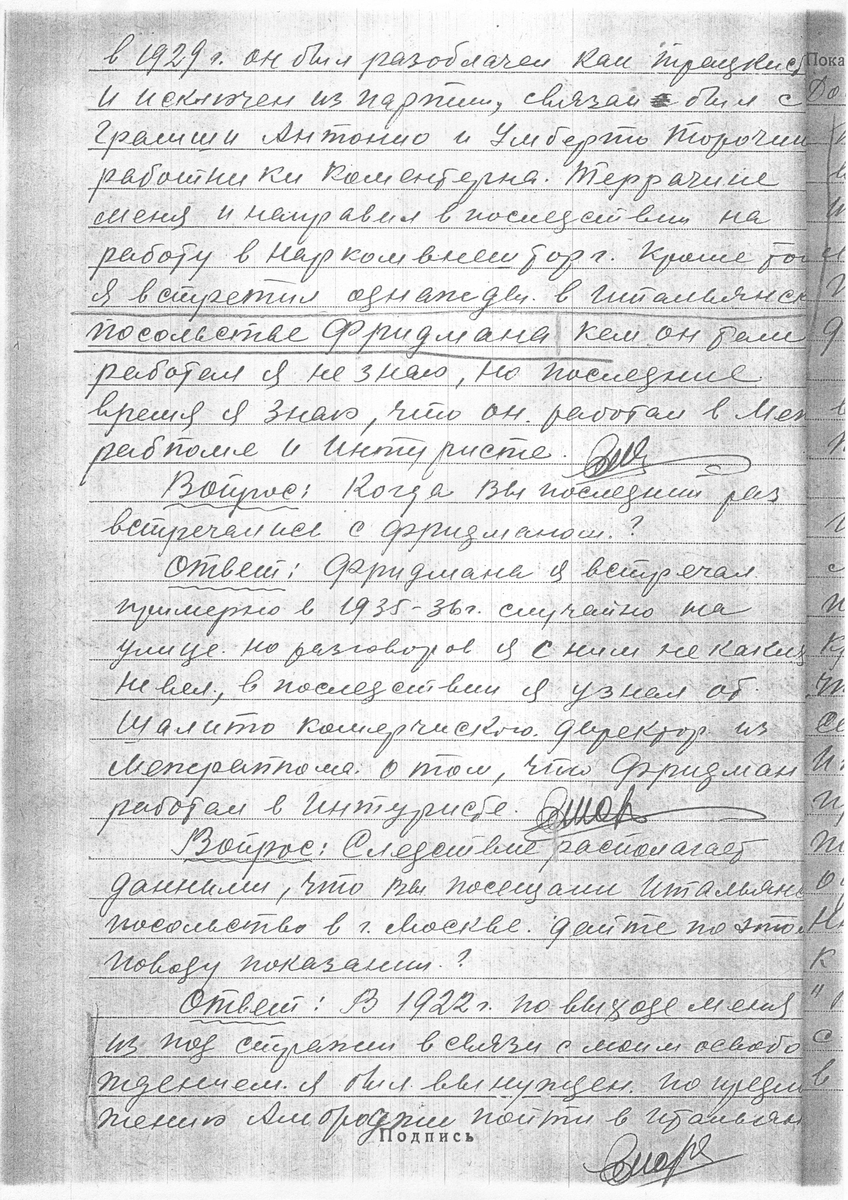 в 1929 г. он был разоблачен как трацкист
и исключен из партии, связан был с
Грамши Антонио и Умберто
работники Коментерна. Террачине
меня и направил в последствии на
работу в Наркомвнешторг. Кроме
я встретил однажды. в Итальянск
посольстве Фридмана кем он там
работал я не знаю, но последние
время я знаю, что он работал в Меж
рабпоме и Интуристе.
Вопрос: Когда вы последний раз
встречались с Фридманом.?
Ответ: Фридмана я встречал
примерно в 1935-36 г. случайно на
улице. но разговоров я с ним не каких
не вел, в последствии я узнал от
Шалито комерчиского. директор из
о том, что Фридман
работал в Интуристе.
Вопрос: Следствие располагает
данними, что вы посещали Итальянс
посольство в г. Москве. дайте по этом
поводу показания.?
Ответ: В 1922 г. по выходе меня
из под стражи в связи с моим освобо
ждением. я был вынужден. по предло
жению пойти в Итальян
Подпись